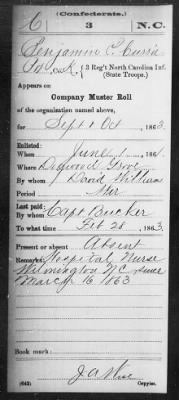 (Confederate.)
C 3 N.C.
Benjamin C. Currie
Pvt, Co. K, 3 Reg't North Carolina Inf.
(State Troops.)
Appears on
Company Muster Roll
of the organization named above,
for Sept & Oct, 1863.
Enlisted:
When June, 186
Where Grove
By whom David Williams
Period War
Last paid:
By whom Capt
To what time Feb 28, 1863.
Present or absent Absent
Remarks: Hospital Nurse
Wilmington NC since
March 16 1863
Book mark:
(642) Copyist.